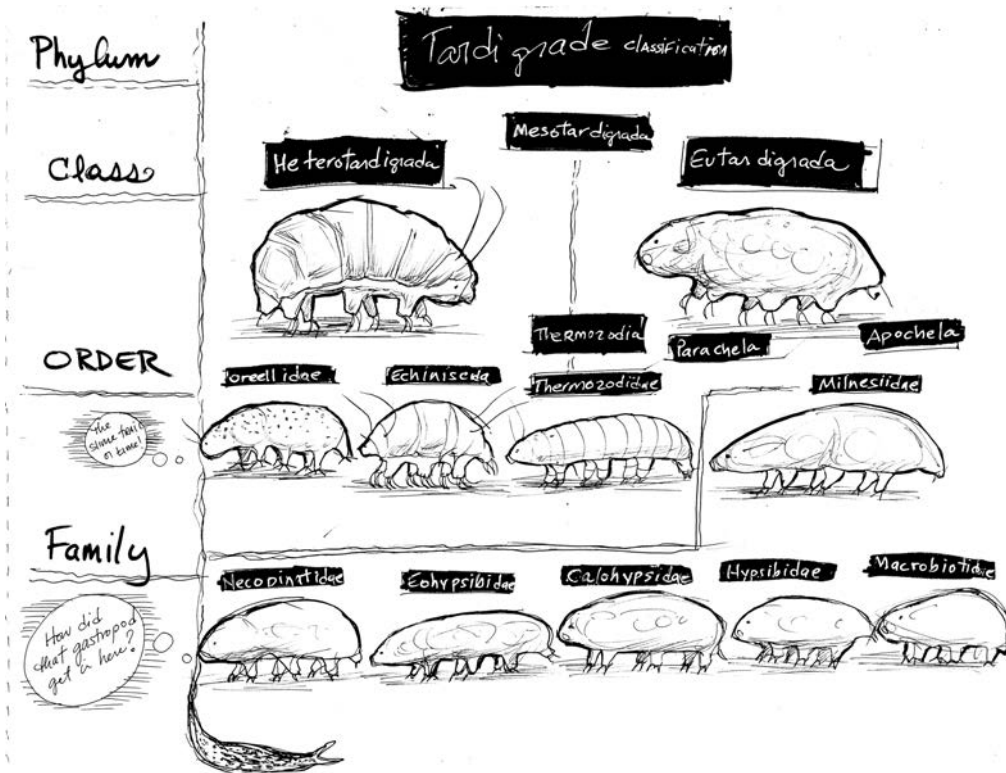 Phylum
Tardigrade classification
Class
Heterotardigrada
Mesotardigrada
Eutardigrada
ORDER
Thermozodia
Parachela
Apochela
Oreellidae
Echiniscida
Thermozodidae
Milnesiidae
The
slime trail
of time!
Family
Necopinatidae
Eohypsibidae
Calohypsidae
Hypsibidae
Macrobiotidae
How did
that gastropod
get in here?